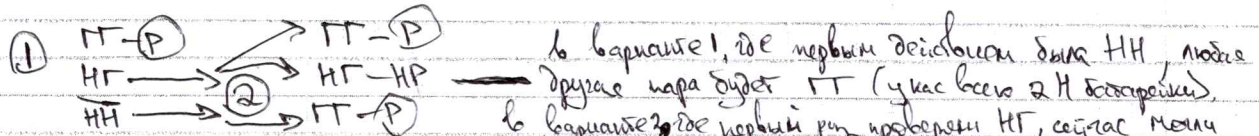 ГГ-Р ГГ-Р в варианте 1, где первым действием была НН, любая
① НГ ② НГ-НР другая пара будет ГГ (у нас всего 2 Н батарейки),
НН ГГ-Р в варианте 2, где первый раз проверяли НГ, сейчас могли